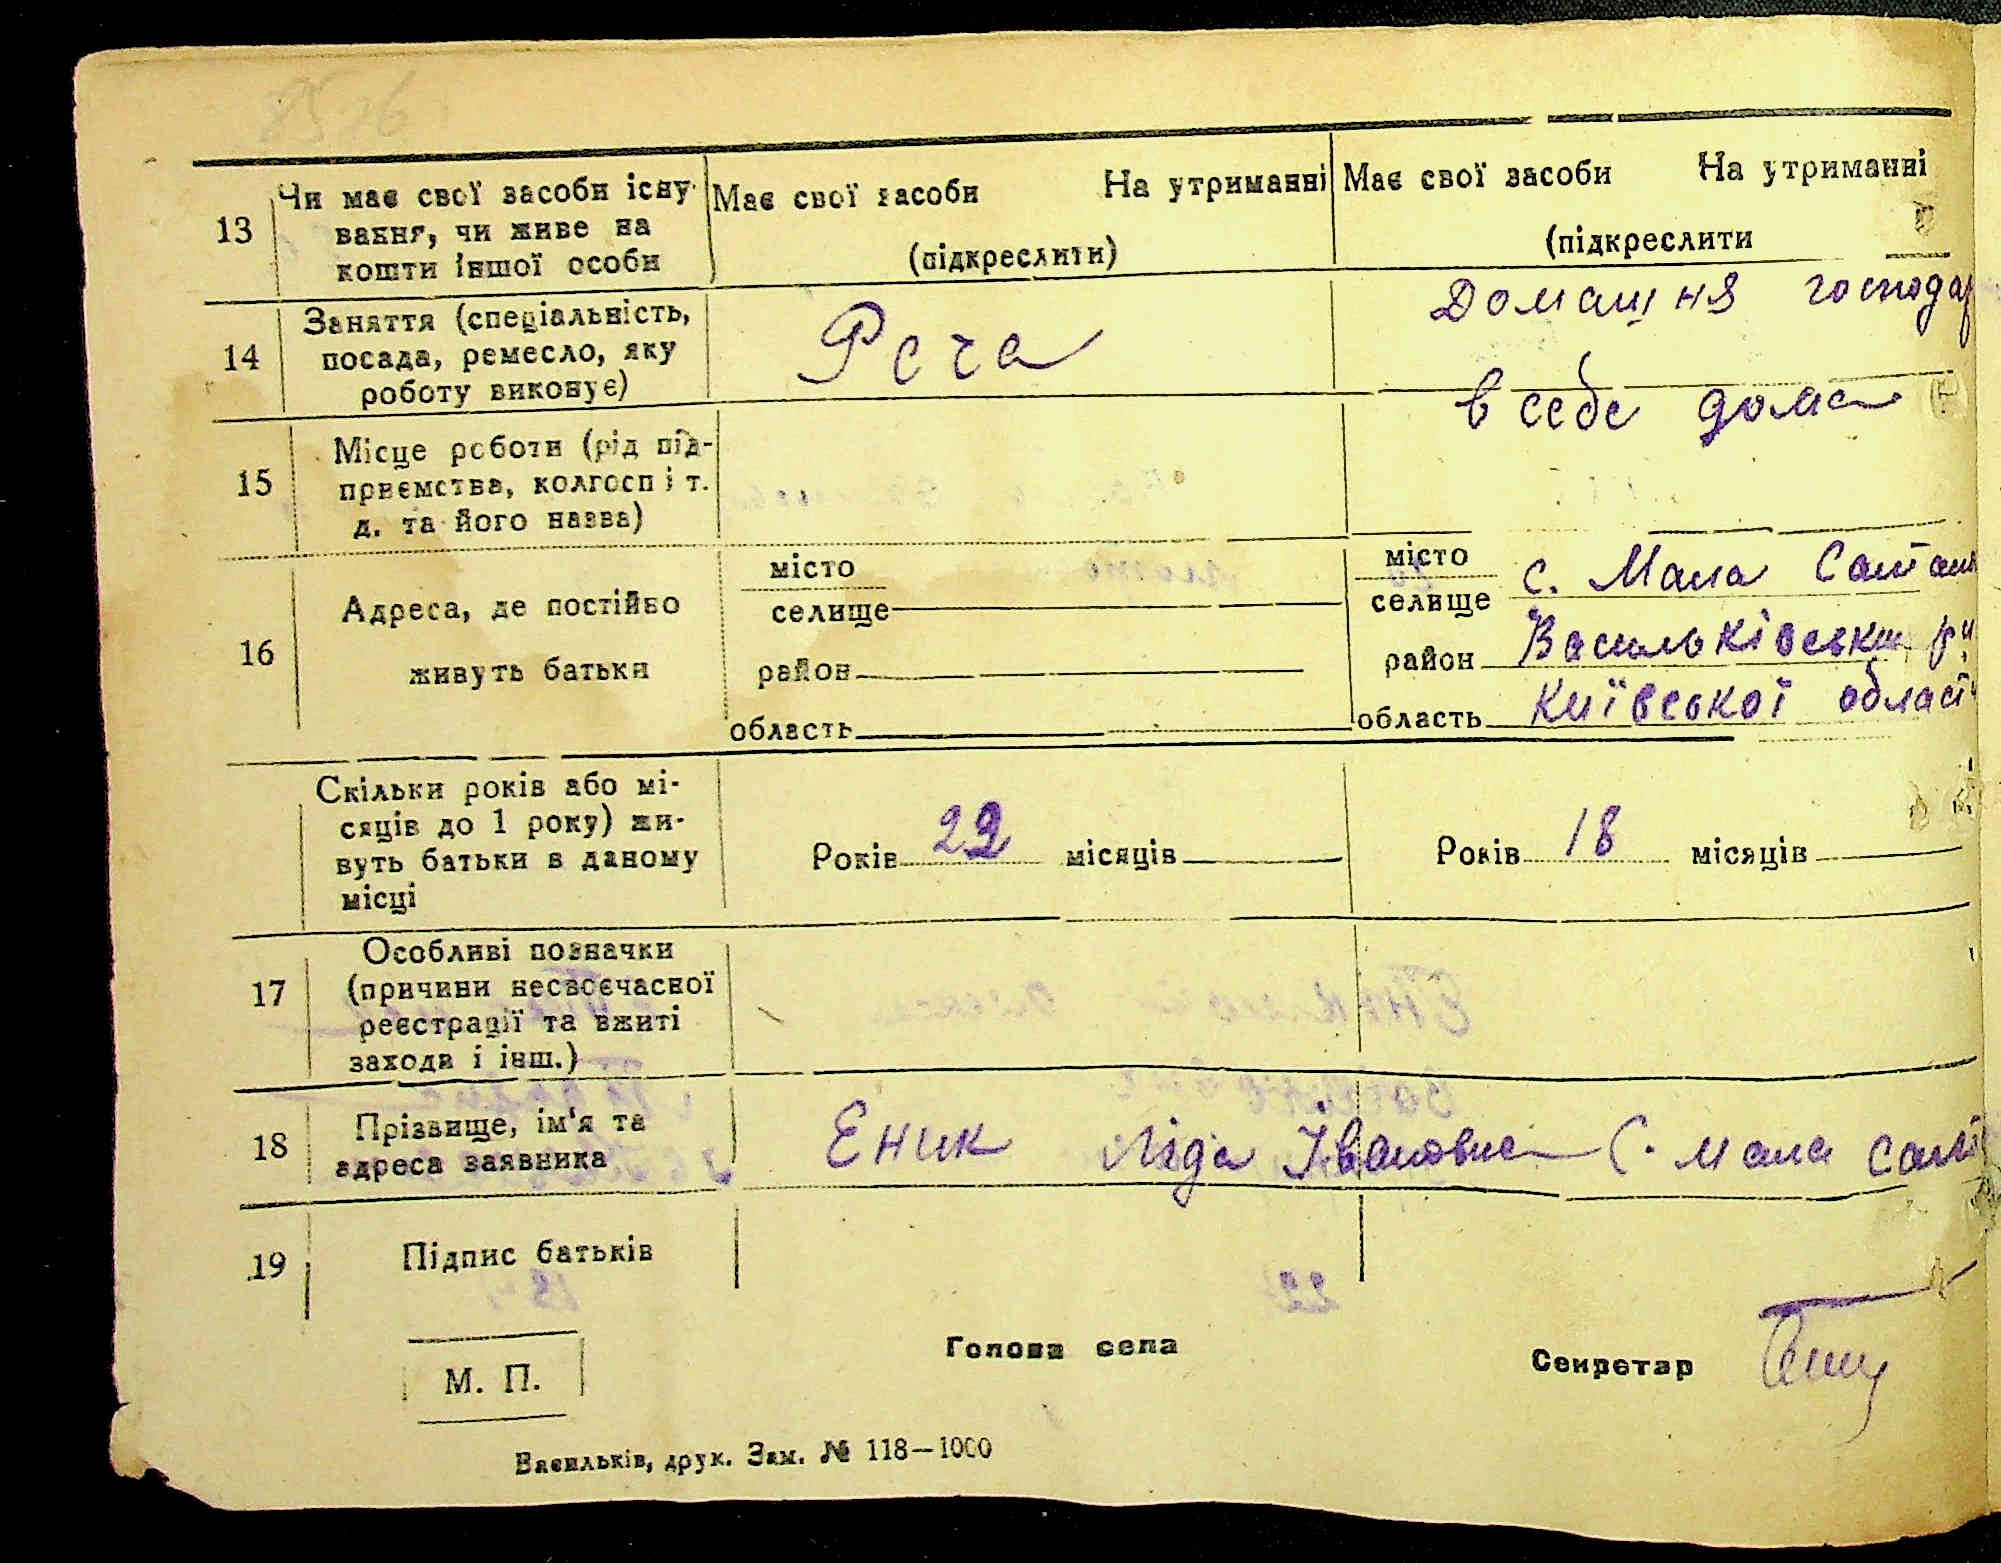 8526
13 Чи має свої засоби існування, чи живе на кошти іншої особи
Має свої засоби На утриманні
(підкреслити)
Має свої засоби На утриманні
(підкреслити
14 Заняття (спеціальність,
посада, ремесло, яку
роботу виконує)
Рсча
Домашня господар
15 Місце роботи (рід під-
приємства, колгосп і т.
д. та його назва)
в себе дома
16 Адреса, де постійно
живуть батьки
місто
селище
район
область
місто
селище с. Мала Салтан
район Васильківськи
область Київської област
Скільки років або мі-
сяців до 1 року) жи-
вуть батьки в даному
місці
Років 22 місяців
Років 18 місяців
17 Особливі позначки
(причини несвоєчасної
реєстрації та вжиті
заходи і інш.)
18 Прізвище, ім'я та
адреса заявника
Еник Ліда Івановна с. Мала Салт
19 Підпис батьків
М. П.
Голова села
Секретар
Васильків, друк. Зам. № 118—1000